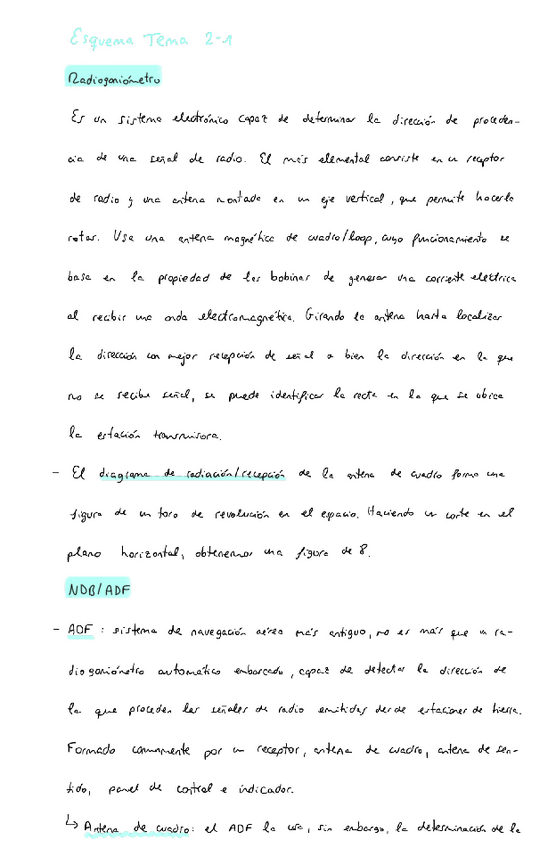 Esquema Tema 2-1
Radiogoniómetro
Es un sistema electrónico capaz de determinar la dirección de proceden-
cia de una señal de radio. El más elemental consiste en un receptor
de radio y una antena montada en un eje vertical, que permite hacerla
rotar. Usa una antena magnética de cuadro/loop, cuyo funcionamiento se
basa en la propiedad de las bobinas de generar una corriente eléctrica
al recibir una onda electromagnética. Girando la antena hasta localizar
la dirección con mejor recepción de señal o bien la dirección en la que
no se recibe señal, se puede identificar la recta en la que se ubica
la estación transmisora.
- El diagrama de radiación/recepción de la antena de cuadro forma una
figura de un toro de revolución en el espacio. Haciendo un corte en el
plano horizontal, obtenemos una figura de 8.
NDB/ADF
- ADF: sistema de navegación aérea más antiguo, no es más que un ra-
diogoniómetro automático embarcado, capaz de detectar la dirección de
la que proceden las señales de radio emitidas desde estaciones de tierra.
Formado comunmente por un receptor, antena de cuadro, antena de sen-
tido, panel de control e indicador.
↳ Antena de cuadro: el ADF la usa, sin embargo, la determinación de la